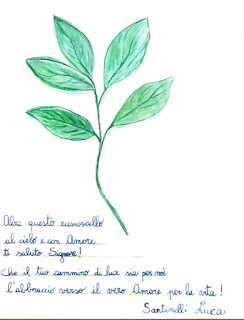 Alzo questo ramoscello
al cielo e con Amore
ti saluto Signore!
Che il tuo cammino di luce sia per noi
l'abbraccio verso il vero Amore per la vita!
Santinelli Luca